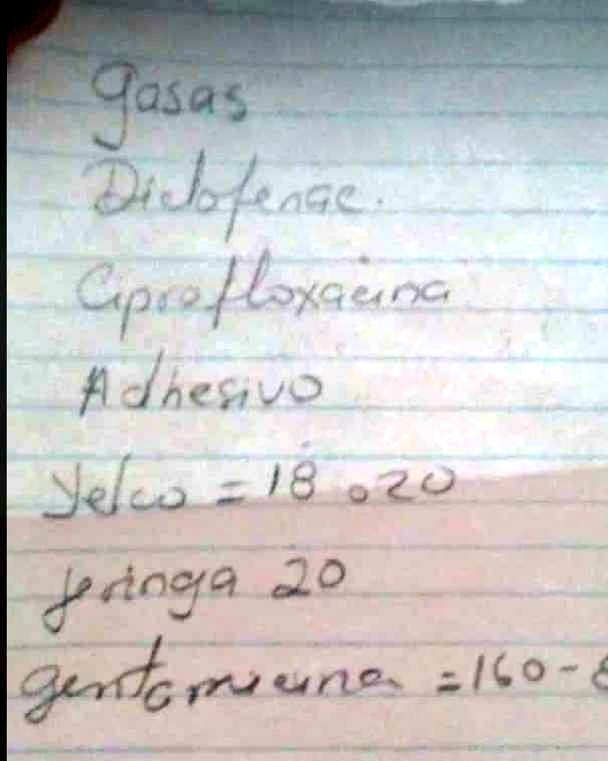 gasas
Diclofenac.
Ciprofloxacina
Adhesivo
Yelco = 18 o 20
Jeringa 20
gentamicina = 160 - 8